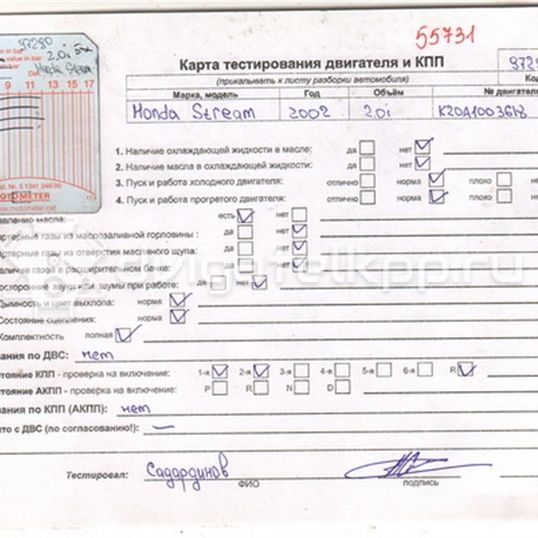 55731
97280
2.0i 5x
Honda Stream
9 11 13 15 17
Tel. Nr. 5 1341 246 00
MOTOMETER
www.motometer.net
Карта тестирования двигателя и КПП
(прикалывать к листу разборки автомобиля)
Марка, модель Год Объём № двигателя
Honda Stream 2002 2.0i
1. Наличие охлаждающей жидкости в масле: да нет
2. Наличие масла в охлаждающей жидкости: да нет
3. Пуск и работа холодного двигателя: отлично норма плохо
4. Пуск и работа прогретого двигателя: отлично норма плохо
авление масла: есть нет
артерные газы из маслозаливной горловины : да нет
артерные газы из отверстия масляного щупа: да нет
аличие газов в расширительном бачке: да нет
осторонние шумы при работе: да нет
Дымность и цвет выхлопа: норма
Состояние сцепления: норма
Комплектность полная
ания по ДВС: нет
тояние КПП - проверка на включение: 1-я 2-я 3-я 4-я 5-я 6-я R
тояние АКПП - проверка на включение: P R N D
ания по КПП (АКПП): нет
то с ДВС (по согласованию!): —
Тестировал: Садардинов
ФИО подпись
dvigatelkpp.ru